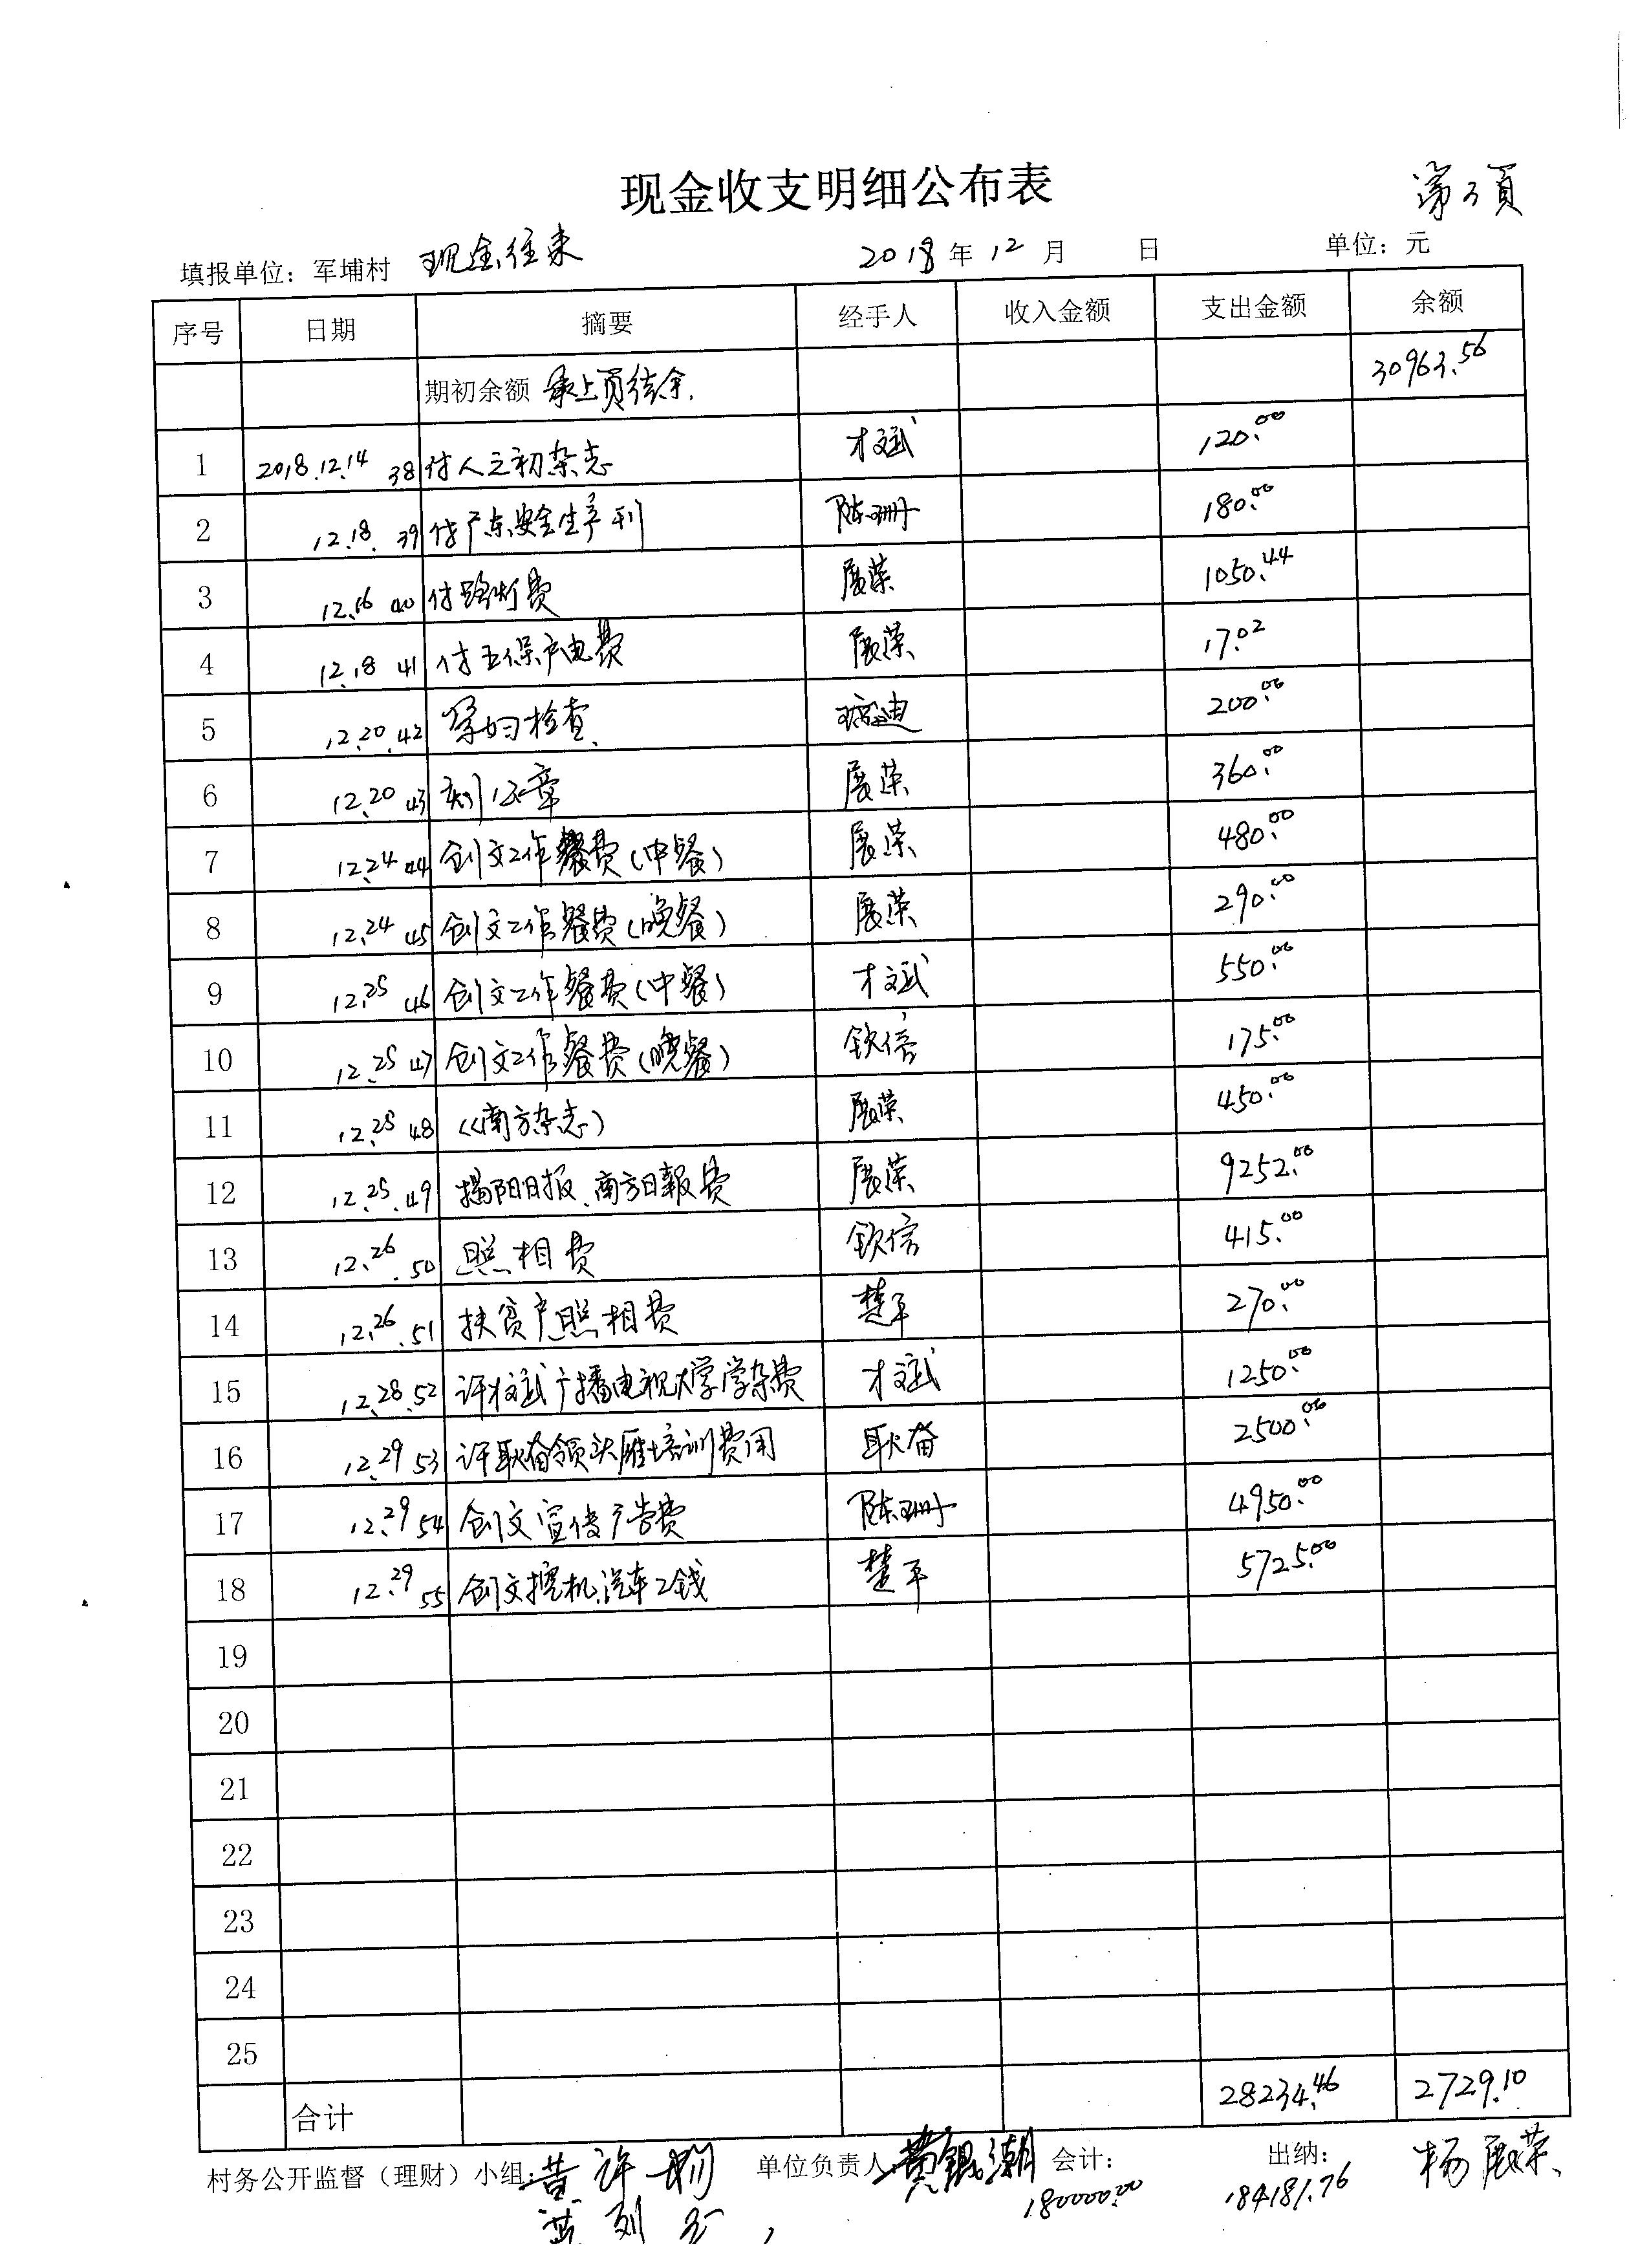 现金收支明细公布表
第3頁
填报单位：军埔村 现金往来 2018年12月 日 单位：元
序号 日期 摘要 经手人 收入金额 支出金额 余额
期初余额 承上页结余. 30963.56
1 2018.12.14 38 付人之初杂志 才斌 120.00
2 12.18. 39 付广东安全生产刊 陈珊 180.00
3 12.16 40 付路灯费 展荣 1050.44
4 12.18 41 付五保户电费 展荣 17.02
5 12.20.42 孕妇检查 200.00
6 12.20 43 刻公章 展荣 360.00
7 12.24 44 创文工作餐费(中餐) 展荣 480.00
8 12.24 45 创文工作餐费(晚餐) 展荣 290.00
9 12.25 46 创文工作餐费(中餐) 才斌 550.00
10 12.25 47 创文工作餐费(晚餐) 钦信 175.00
11 12.25 48 《南方杂志》 展荣 450.00
12 12.25.49 揭阳日报、南方日報费 展荣 9252.00
13 12.26.50 照相费 钦信 415.00
14 12.26.51 扶贫户照相费 楚平 270.00
15 12.28.52 许才斌广播电视大学学杂费 才斌 1250.00
16 12.29 53 许耿奋领头雁培训费用 耿奋 2500.00
17 12.29 54 创文宣传广告费 陈珊 4950.00
18 12.29 55 创文挖机.汽车工钱 楚平 5725.00
19
20
21
22
23
24
25
合计 28234.46 2729.10
村务公开监督（理财）小组： 单位负责人 黄锟潮 会计： 出纳： 杨展荣
180000.00 184181.76